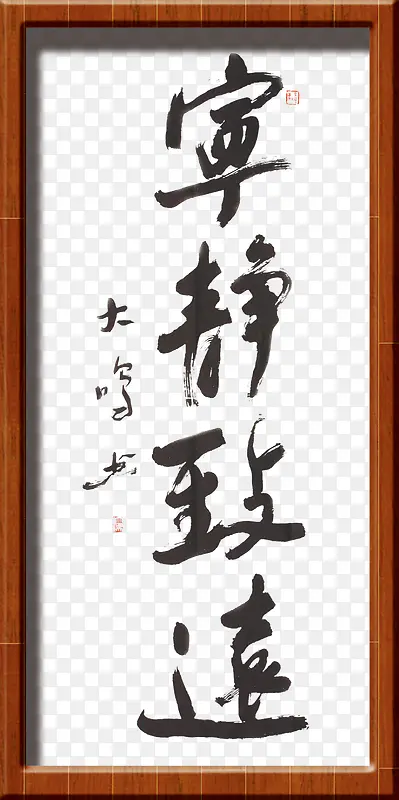 寧靜致遠
大鳴书